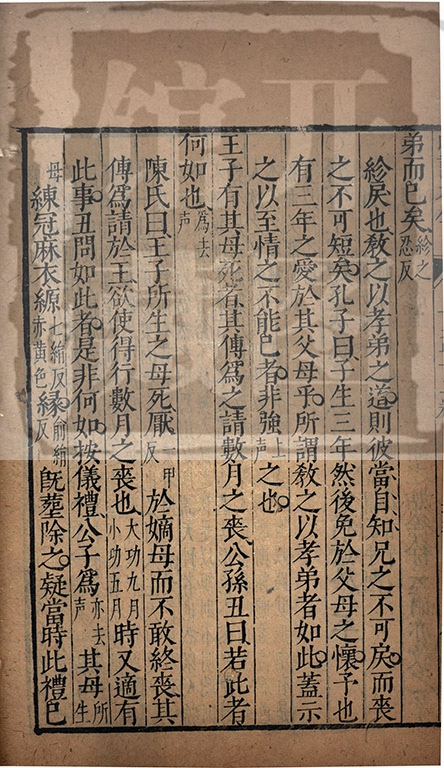 弟而已矣紾之忍反
紾戾也教之以孝弟之道則彼當自知兄之不可戾而喪
之不可短矣孔子曰子生三年然後免於父母之懷予也
有三年之愛於其父母乎所謂教之以孝弟者如此蓋示
之以至情之不能已者非強上聲之也
王子有其母死者其傅爲之請數月之喪公孫丑曰若此者
何如也爲去聲
陳氏曰王子所生之母死厭一甲反於嫡母而不敢終喪其
傅爲請於王欲使得行數月之喪也大功九月小功五月時又適有
此事丑問如此者是非何如按儀禮公子爲亦去聲其母所生
母練冠麻衣縓七絹反亦黃色縁俞絹反旣塟除之疑當時此禮已